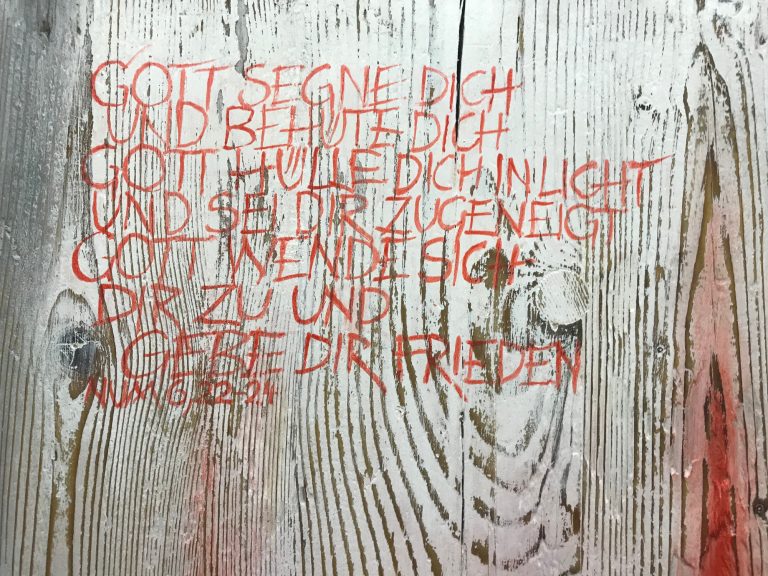 GOTT SEGNE DICH
UND BEHÜTE DICH
GOTT HÜLLE DICH IN LICHT
UND SEI DIR ZUGENEIGT
GOTT WENDE SICH
DIR ZU UND
GEBE DIR FRIEDEN
NUM 6,22-24